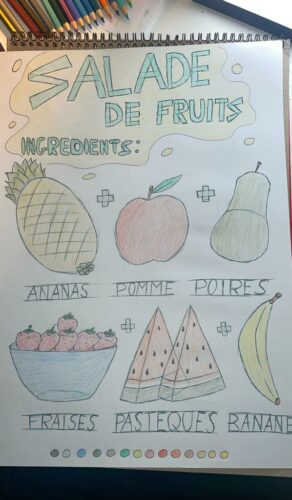 SALADE
DE FRUITS
INGREDIENTS:
ANANAS POMME POIRES
FRAISES PASTEQUES BANANE